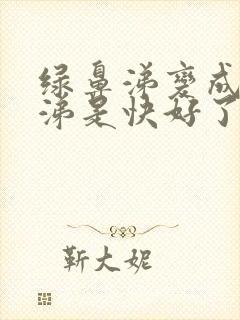 绿鼻涕变成
涕是快好了
靳大妮